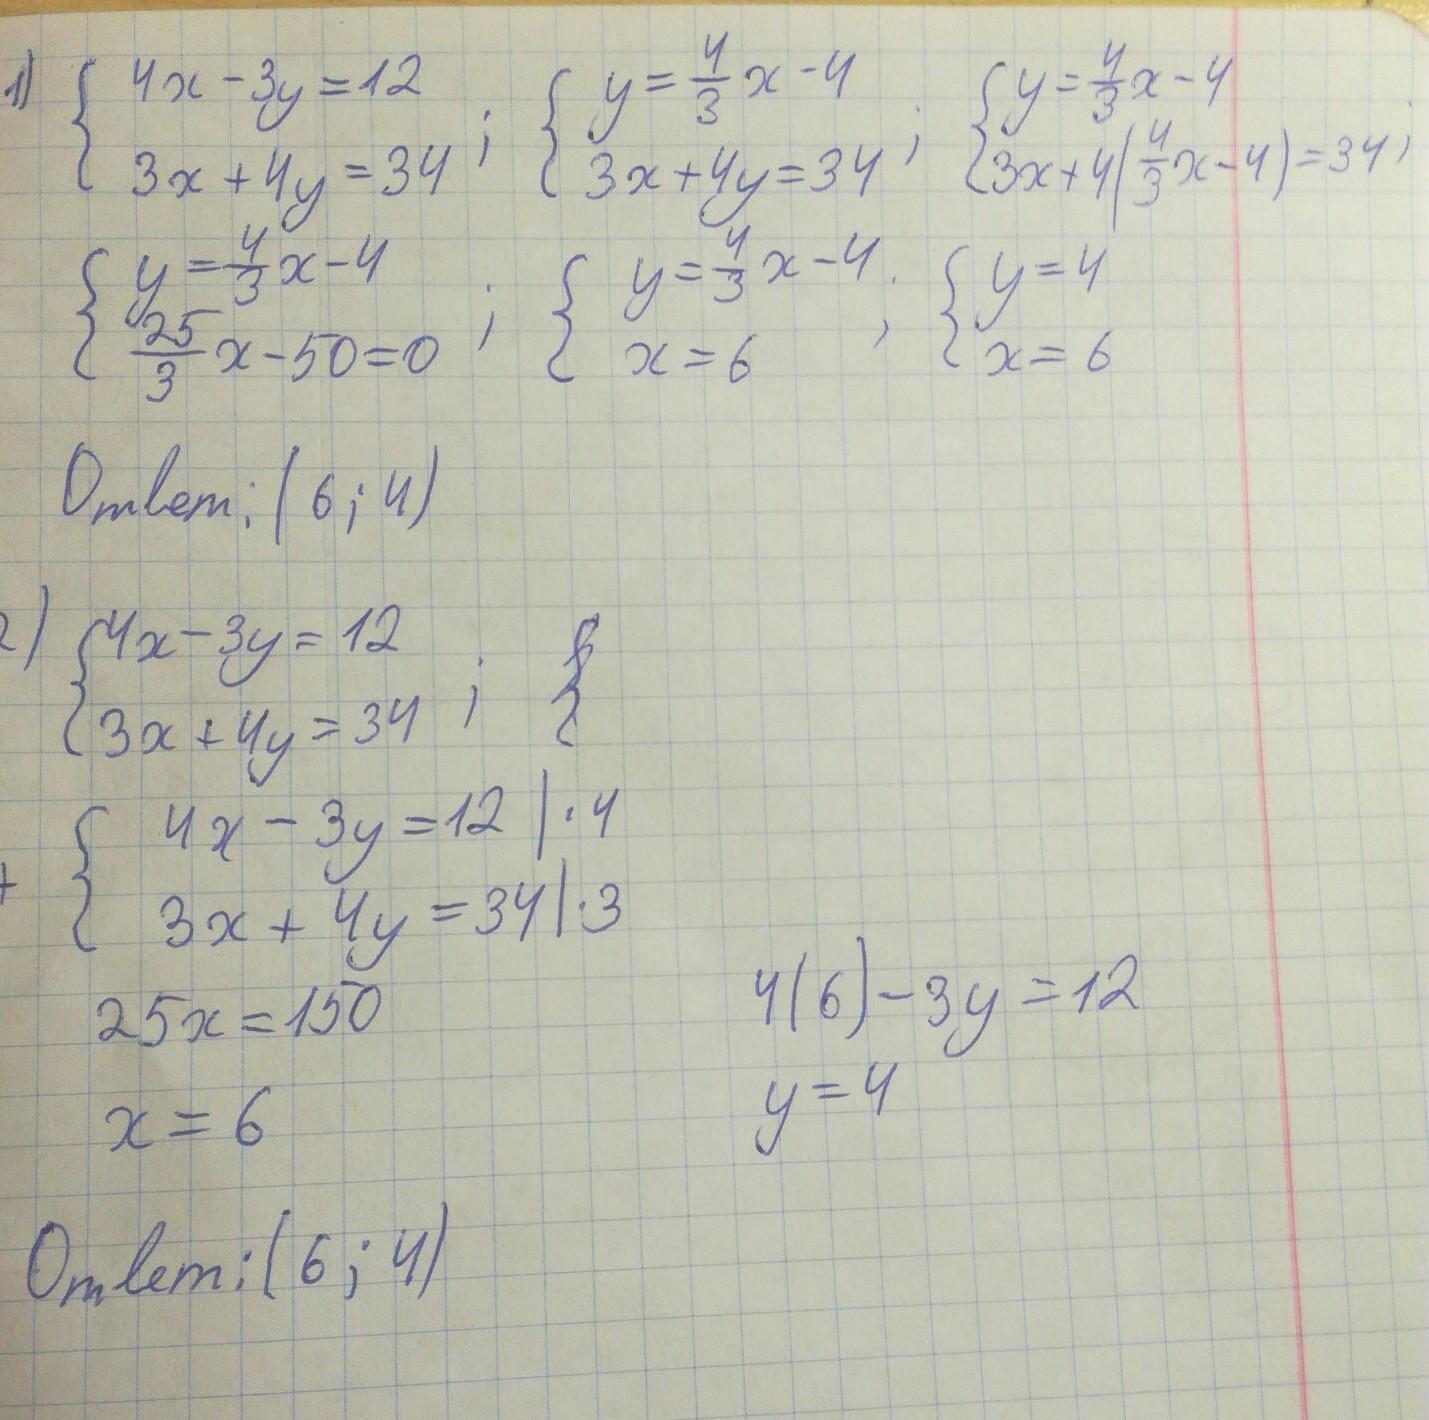 1) { 4x - 3y = 12 ; { y = 4/3 x - 4 ; { y = 4/3 x - 4
3x + 4y = 34 3x + 4y = 34 3x + 4(4/3 x - 4) = 34 ;
{ y = 4/3 x - 4 ; { y = 4/3 x - 4 ; { y = 4
25/3 x - 50 = 0 x = 6 x = 6
Ответ: (6; 4)
2) { 4x - 3y = 12 ; {
3x + 4y = 34
+ { 4x - 3y = 12 | · 4
3x + 4y = 34 | · 3
25x = 150
x = 6
4(6) - 3y = 12
y = 4
Ответ: (6; 4)